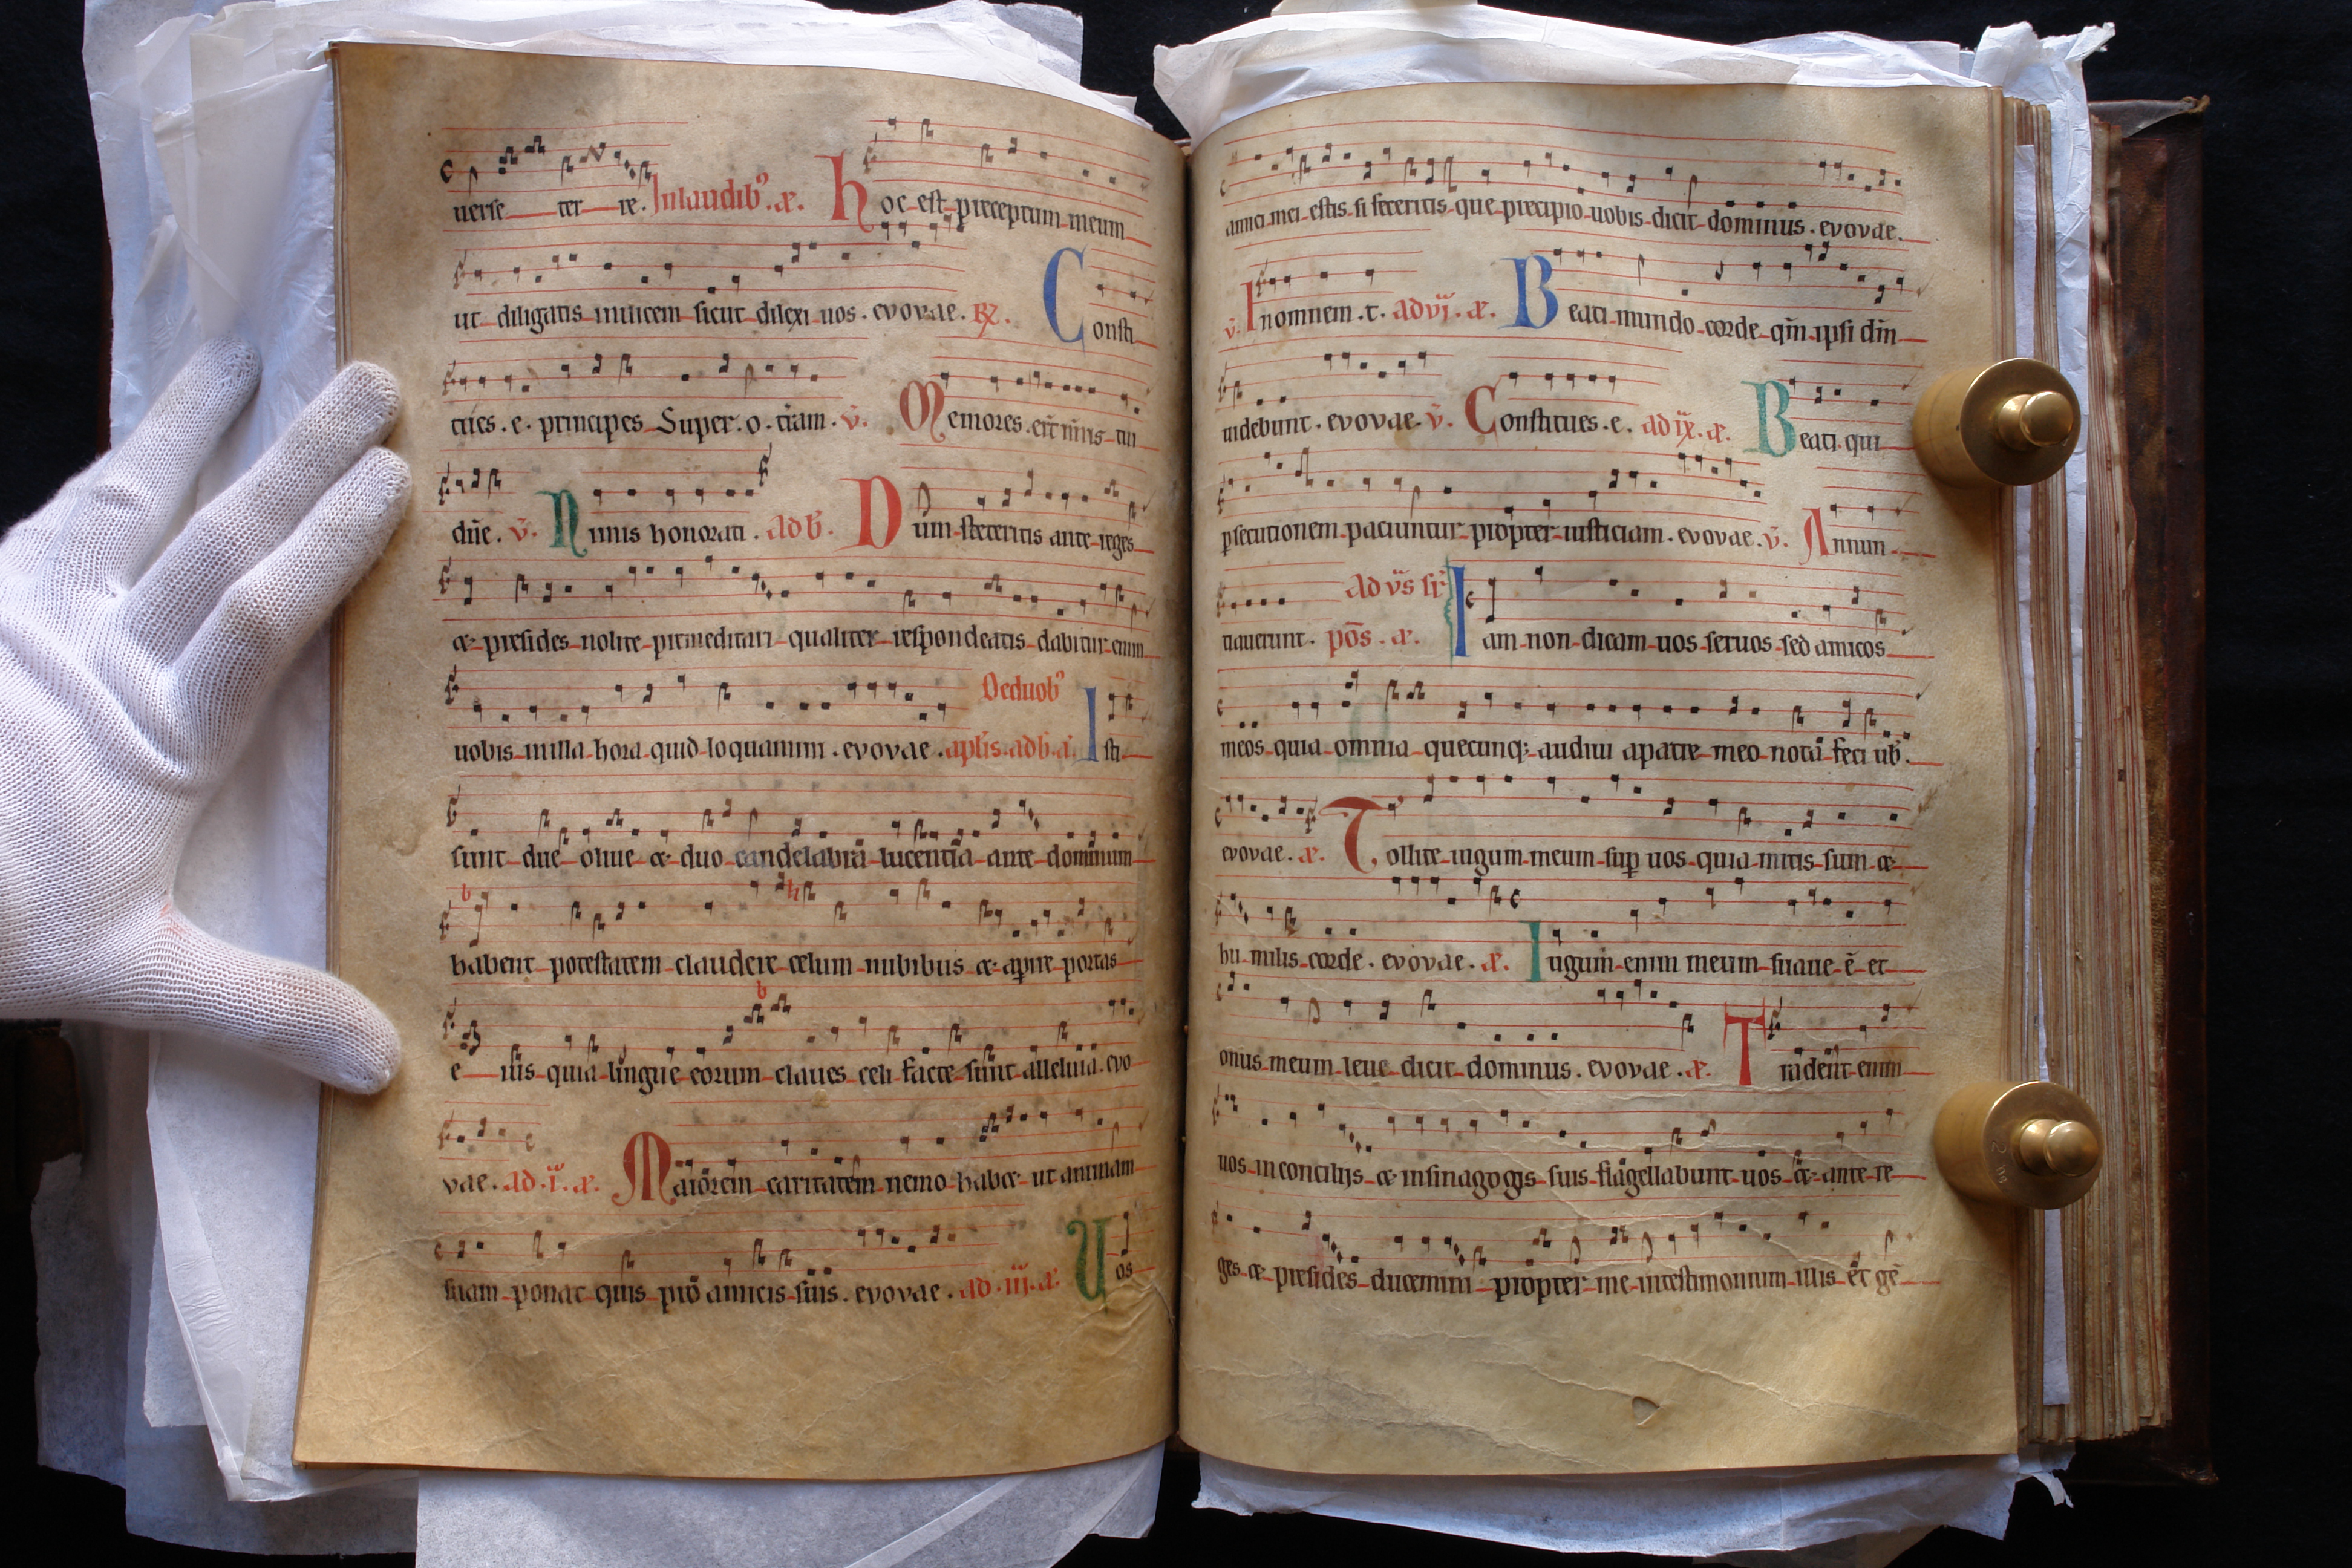 uerse ter re. Inlaudib⁹. æ. hoc est preceptum meum
ut diligatis inuicem sicut dilexi uos. evovae. R. Consti
tues. e. principes Super. o. tram. v. Memores. erūt nōis tui
dn̄e. v. Nimis honorati. ad b. Dum steteritis ante reges
æ presides nolite premeditari qualiter respondeatis dabitur enim
uobis in illa hora quid loquamini. evovae. Deduob⁹ apl̄is. ad b. a. Isti
sunt due oliue æ duo candelabra lucentia ante dominum
habent potestatem claudere celum nubibus æ aperire portas
e ius quia lingue eorum claues celi facte sunt alleluia. evo
vae. ad .i. æ. Maiorem caritatem nemo habæ ut animam
suam ponat quis pro amicis suis. evovae. ad .iii. a. Uos
amici mei estis si feceritis que precipio uobis dicit dominus. evovae.
v. In omnem. t. ad vi. æ. Beati mundo corde qm̄ ipsi dm̄
uidebunt. evovae. v. Constitues. e. ad ix. æ. Beati qui
psecutionem paciuntur propter iusticiam. evovae. v. Annun
tiauerunt. ad vs̄ sr̄ pōs. a. Iam non dicam uos seruos sed amicos
meos quia omnia quecunq; audiui apatre meo nota feci ub̄.
evovae. æ. Tollite iugum meum sup uos quia mitis sum æ
hu milis corde. evovae. æ. Iugum enim meum suaue ē et
onus meum leue dicit dominus. evovae. æ. Tradent enim
uos in concilijs æ in sinagogis suis flagellabunt uos æ ante re
ges æ presides ducemini propter me intestimonium illis et gē